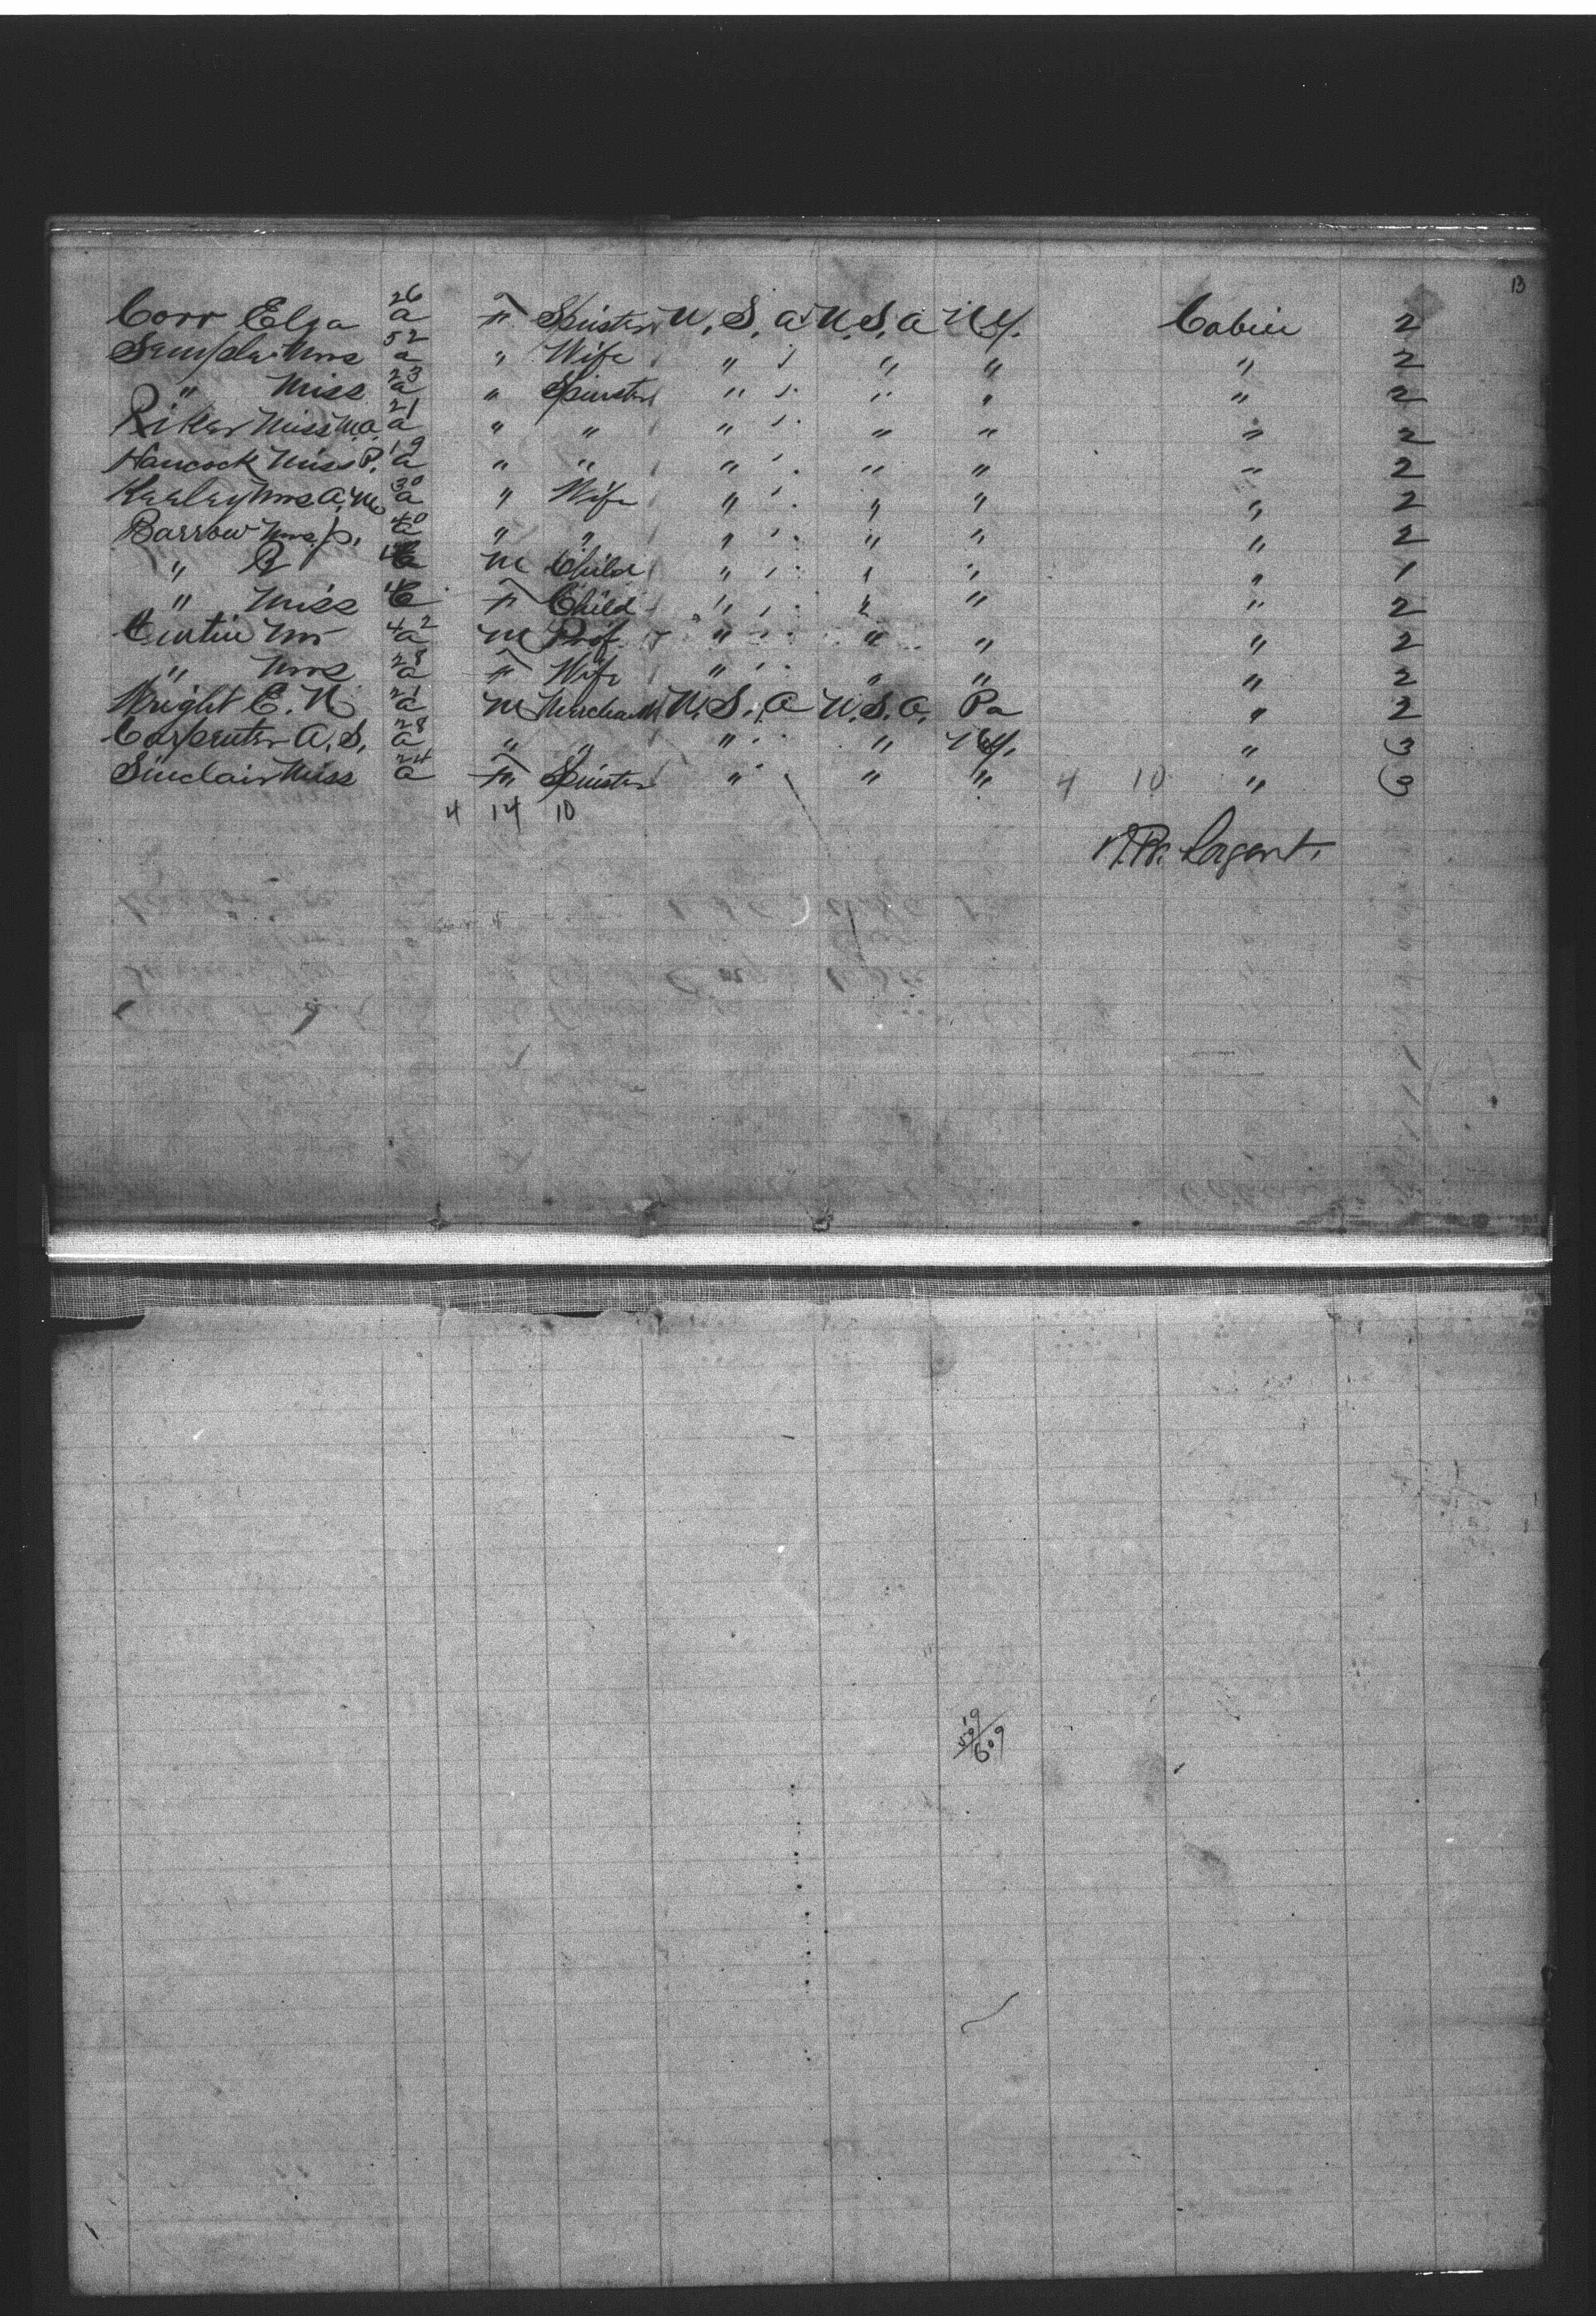 13
Corr Elga 26 a F Spinster U.S.a U.S.a N.Y. Cabin 2
Semple Mrs 52 a " Wife " " " " 2
" Miss 23 a " Spinster " " " " 2
Riker Miss M.a. 21 a " " " " " " 2
Hancock Miss P. 19 a " " " " " " 2
Kealey Mrs A.M. 30 a " Wife " " " " 2
Barrow Mrs J. 40 a " " " " " " 2
" R M Child " " " " 1
" Miss F Child " " " " 2
Curtin Mr 42 a M Prof. " " " " 2
" Mrs 28 a F Wife " " " " 2
Wright E.N 21 a M Merchant U.S.A U.S.a. Pa " 2
Carpenter A.S. 28 a " " " " N.Y. " 3
Sinclair Miss 24 a F Spinster " " " 4 10 " 3
4 14 10
Sargent.
609